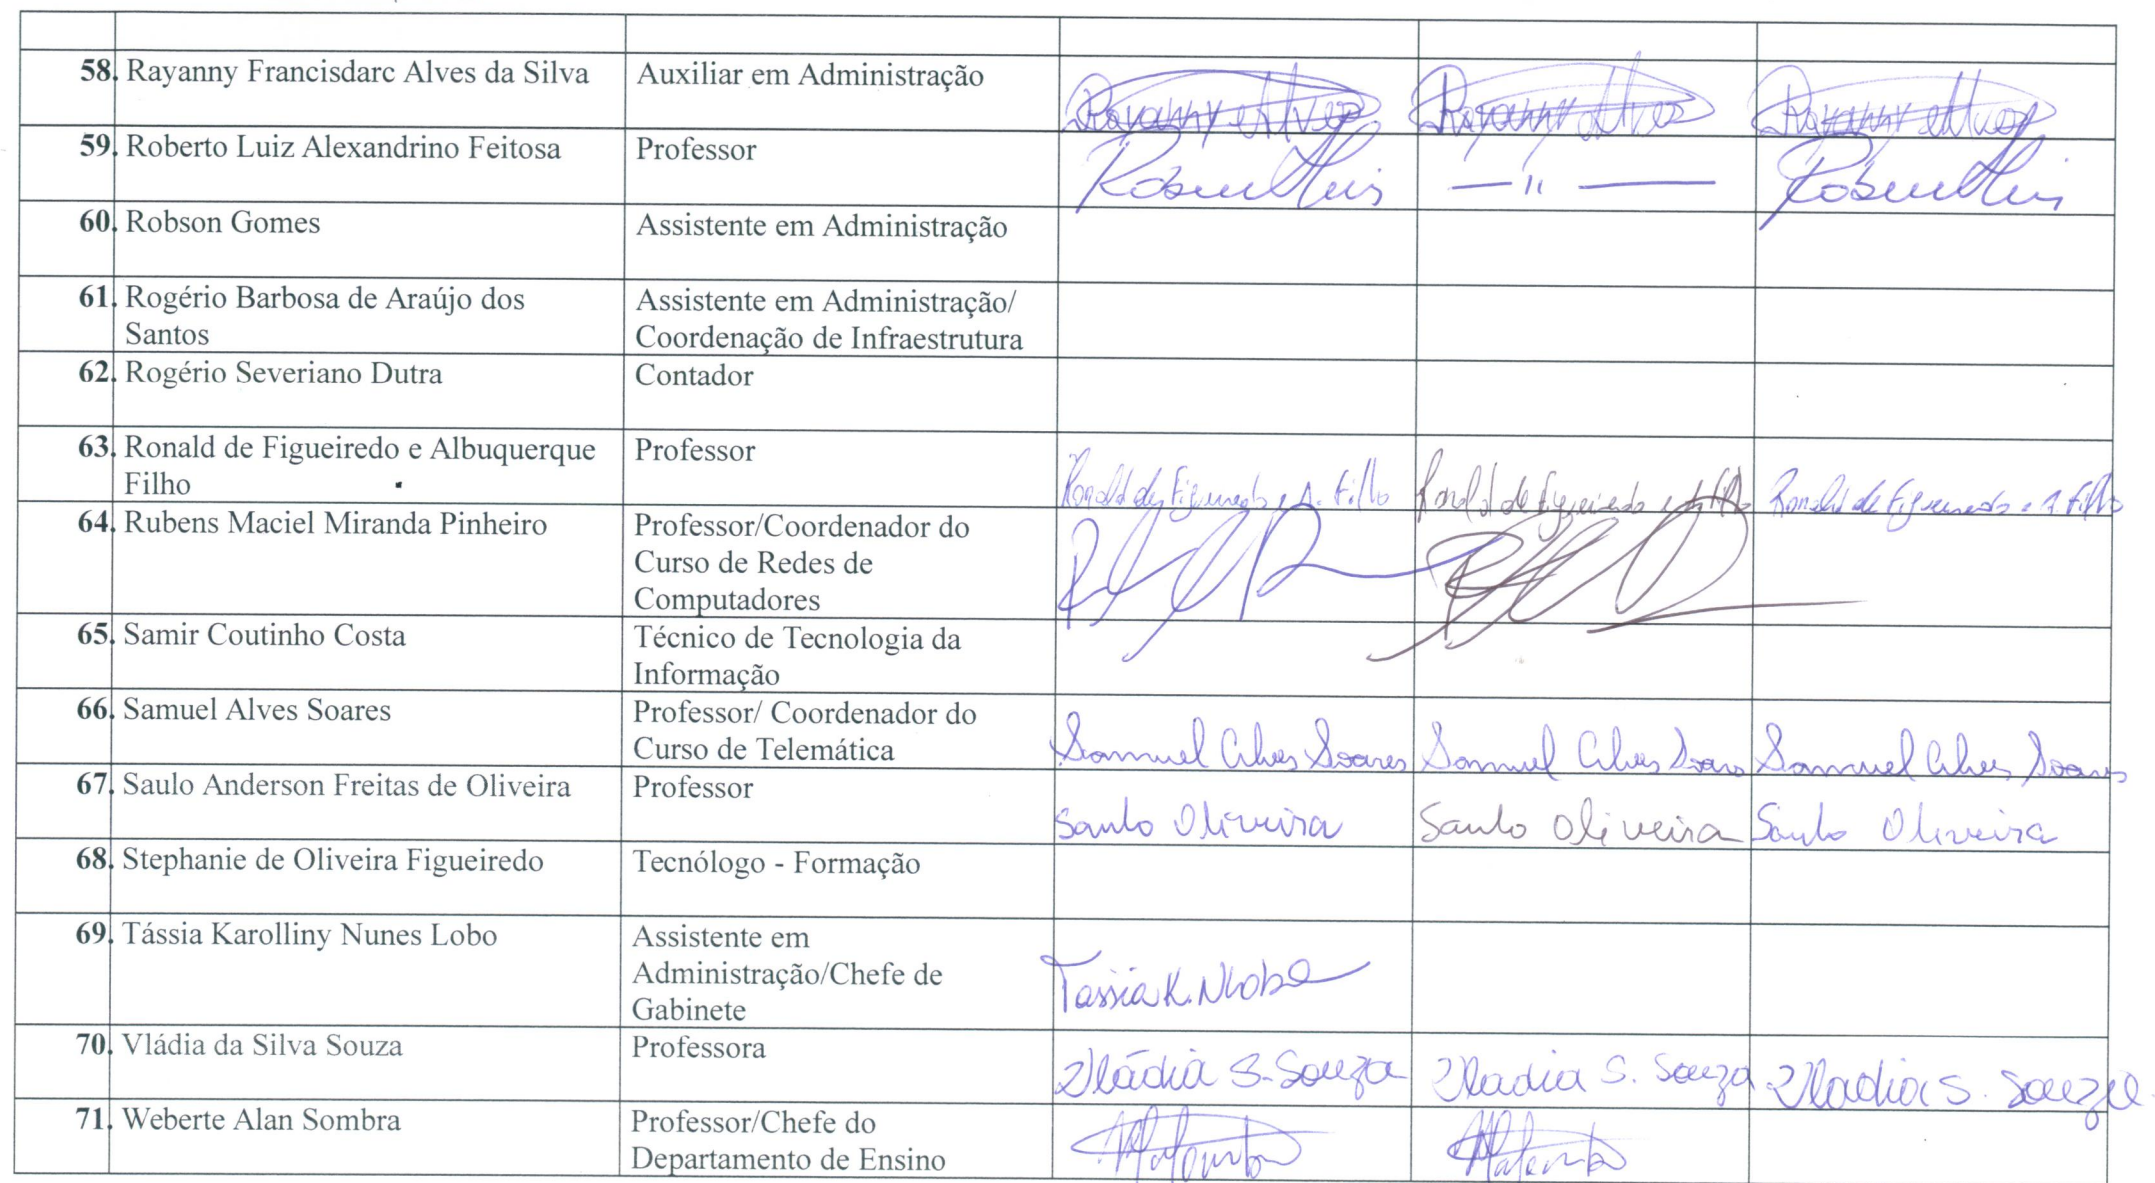 58. Rayanny Francisdarc Alves da Silva Auxiliar em Administração Rayanny Alves Rayanny Alves Rayanny Alves
59. Roberto Luiz Alexandrino Feitosa Professor — 11 —
60. Robson Gomes Assistente em Administração
61. Rogério Barbosa de Araújo dos Assistente em Administração/
Santos Coordenação de Infraestrutura
62. Rogério Severiano Dutra Contador
63. Ronald de Figueiredo e Albuquerque Professor
Filho Ronald de Figueiredo e A. Filho Ronald de Figueiredo e A Filho Ronald de Figueiredo e A Filho
64. Rubens Maciel Miranda Pinheiro Professor/Coordenador do
Curso de Redes de
Computadores
65. Samir Coutinho Costa Técnico de Tecnologia da
Informação
66. Samuel Alves Soares Professor/ Coordenador do
Curso de Telemática Samuel Alves Soares Samuel Alves Soares Samuel Alves Soares
67. Saulo Anderson Freitas de Oliveira Professor
Saulo Oliveira Saulo Oliveira Saulo Oliveira
68. Stephanie de Oliveira Figueiredo Tecnólogo - Formação
69. Tássia Karolliny Nunes Lobo Assistente em
Administração/Chefe de Tassia K. N Lobo
Gabinete
70. Vládia da Silva Souza Professora
Vládia S. Souza Vladia S. Souza Vladia S. Souza
71. Weberte Alan Sombra Professor/Chefe do
Departamento de Ensino